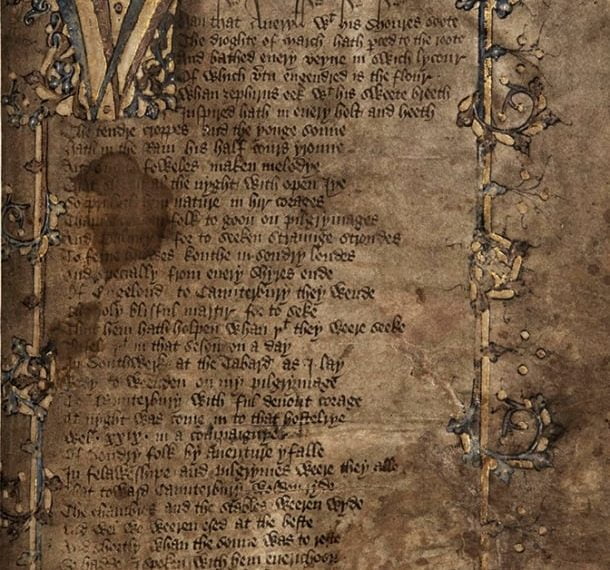 Whan that Aueryłł wt his shoures soote
The droghte of march hath pced to the roote
And bathed euery veyne in swich lycour
Of which vtu engendred is the flour
Whan zephirus eek wt his sweete breeth
Inspired hath in euery holt and heeth
The tendre croppes and the yonge sonne
hath in the Ram his half cours yronne
And foweles maken melodye
the nyght with open Iye
So nature in hir corages
folk to goon on pilgrymages
And for to seeken straunge strondes
To ferne kouthe in sondry londes
And specially from euery shyres ende
Of Engelond to Caunterbury they wende
The hooly blisful martir for to seke
That hem hath holpen whan þt they weere seeke
þt in that seson on a day
In Southwerk at the Tabard as I lay
Redy to wenden on my pilgrymage
To Caunterbury with ful deuout corage
At nyght was come in to that hostelrye
wel .xxix. in a compaignye
Of sondry folk by auenture yfalle
In felaweshipe and pilgrymes weere they alle
That toward Caunterbury wolden ryde
The chambres and the stables weeren wyde
And wel we weeren esed at the beste
And shortly whan the sonne was to reste
So hadde I spoken with hem euerichon